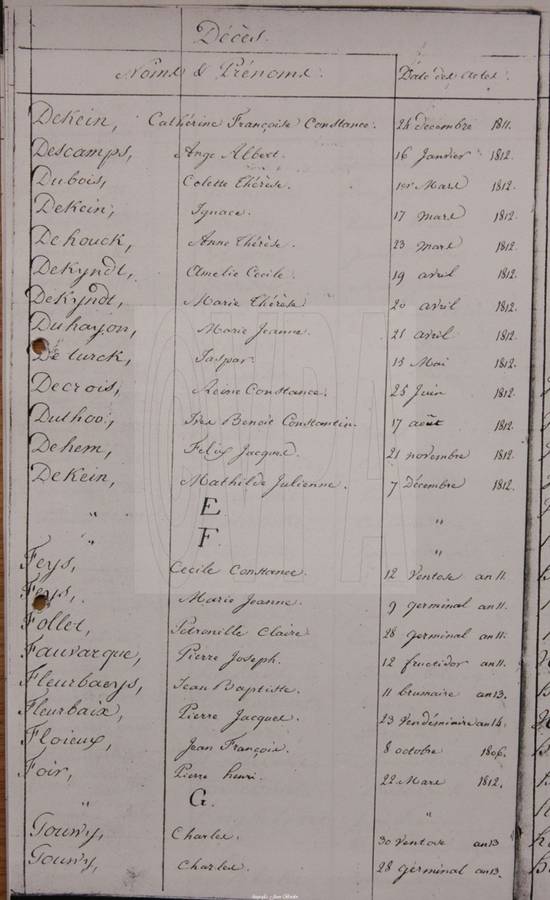 Décès.
Noms & Prénoms. Date des actes.
DeKein, Cathérine Françoise Constance. 24 Décembre 1811.
Descamps, Ange Albert. 16 Janvier 1812.
Dubois, Colette Thérèse. 1er Mars 1812.
DeKein, Ignace. 17 mars 1812.
Dehouck, Anne Thérèse. 23 mars 1812.
DeKyndt, Amelie Cecile. 19 avril 1812.
DeKyndt, Marie Thérèse 20 avril 1812.
Duhayon, Marie Jeanne. 21 avril 1812.
De turck, Jaspar. 15 Mai 1812.
Decrois, Reine Constance. 25 Juin 1812.
Duthoo, Ives Benoit Constantin. 17 août 1812.
Dehem, Félix Jacques. 21 novembre 1812.
DeKein, Mathilde Julienne. 7 Décembre 1812.
" E "
" F "
Feys, Cecile Constance. 12 Ventose an 11.
Feys, Marie Jeanne. 9 germinal an 11.
Follet, Petronille Claire 28 germinal an 11.
Fauvarque, Pierre Joseph. 12 fructidor an 11.
Fleurbaeys, Jean Baptiste. 11 brumaire an 13.
Fleurbaix, Pierre Jacques. 23 Vendémiaire an 14.
Floieux, Jean François. 8 octobre 1806.
Foir, Pierre henri. 22 Mars 1812.
" G. "
Gouwy, Charles. 30 Ventose an 13
Gouwy, Charles. 28 germinal an 13.